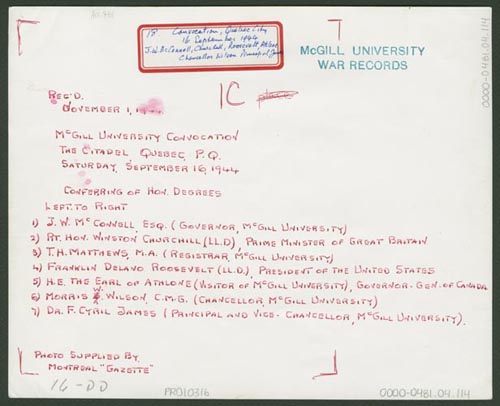 18 Convocation, Quebec City
16 September 1944
J.W. McConnell, Churchill, Roosevelt, Athlone
Chancellor Wilson Principal James
McGILL UNIVERSITY
WAR RECORDS
0000-0481.04.114
1C
REC'D.
NOVEMBER 1,
McGILL UNIVERSITY CONVOCATION
THE CITADEL QUEBEC, P.Q.
SATURDAY, SEPTEMBER 16, 1944
CONFERING OF HON. DEGREES
LEFT TO RIGHT
1) J. W. McCONNELL, ESQ. (GOVERNOR, McGILL UNIVERSITY)
2) RT. HON. WINSTON CHURCHILL (LL.D), PRIME MINISTER OF GREAT BRITAIN
3) T.H. MATTHEWS, M.A. (REGISTRAR, McGILL UNIVERSITY)
4) FRANKLIN DELANO ROOSEVELT (LL.D.), PRESIDENT OF THE UNITED STATES
5) H.E. THE EARL OF ATHLONE (VISITOR OF McGILL UNIVERSITY), GOVERNOR-GEN. OF CANADA
6) MORRIS W. WILSON, C.M.G. (CHANCELLOR, McGILL UNIVERSITY)
7) DR. F. CYRIL JAMES (PRINCIPAL AND VICE-CHANCELLOR, McGILL UNIVERSITY).
PHOTO SUPPLIED BY
MONTREAL "GAZETTE"
16-DD
PR010316
0000-0481.04.114